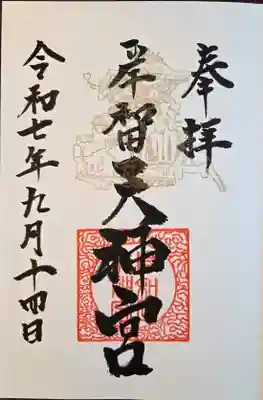 奉拝
岸智天神宮
令和七年九月十四日